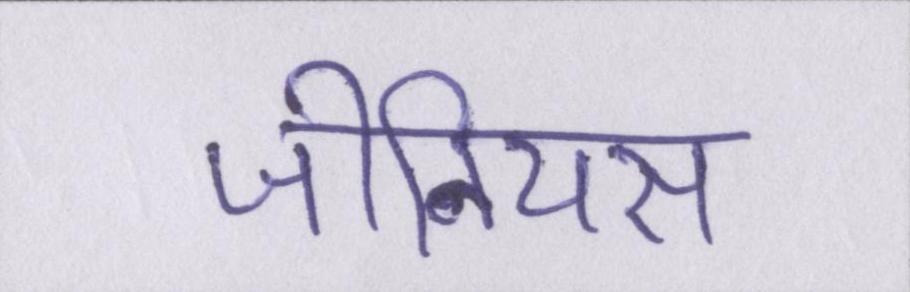 जीनियस